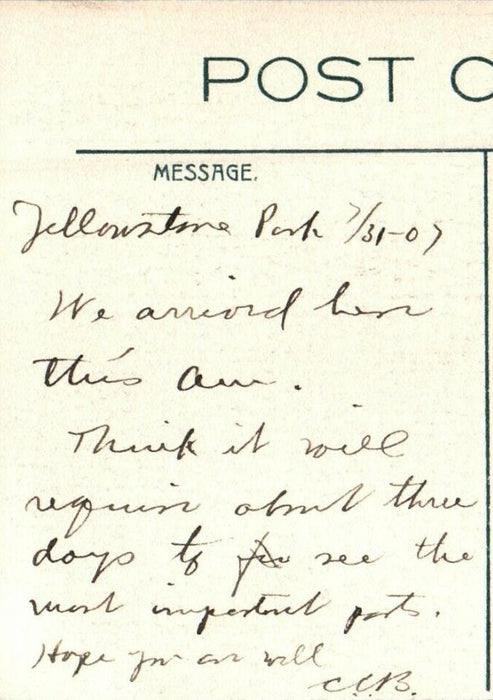 POST C
MESSAGE.
Yellowstone Park 7/31-07
We arrived here
this am.
Think it will
require about three
days to see the
most important parts.
Hope you are well
C.C.B.